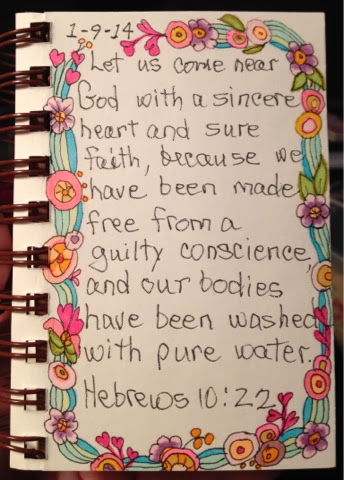 1-9-14
Let us come near
God with a sincere
heart and sure
faith, because we
have been made
free from a
guilty conscience,
and our bodies
have been washed
with pure water.
Hebrews 10:22